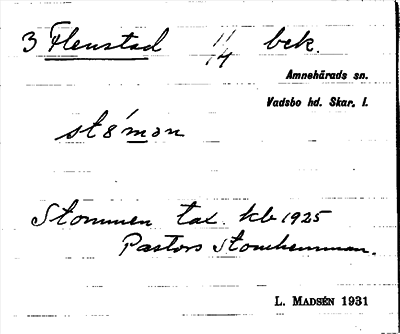 3 Flenstad 11/14 bek.
Amnehärads sn.
Vadsbo hd. Skar. l.
st8́man
Stommen tax. kb 1925
Pastors stomhemman.
L. MADSÉN 1931